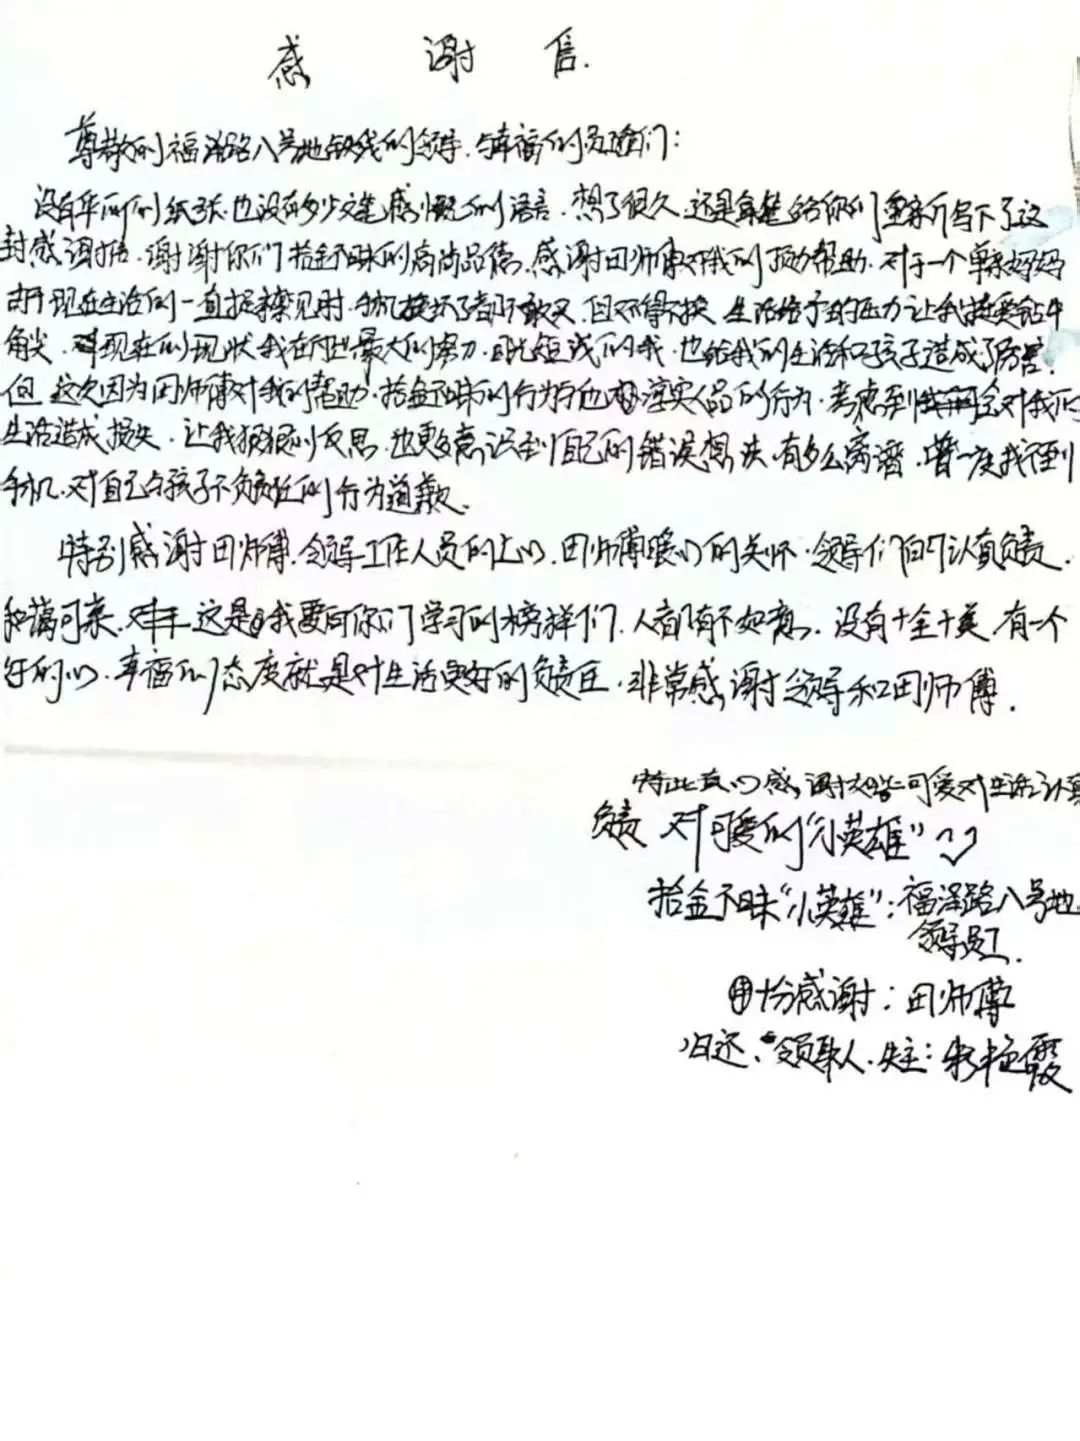 感 谢 信.
尊敬的福泽路八号地的领导.与幸福的员工们:
没有华丽的纸张.也没有多少文笔感慨的语言.想了很久.还是拿笔给你们重新写下了这
封感谢信.谢谢你们拾金不昧的高尚品德.感谢田师傅对我的帮助.对于一个单亲妈妈
现在生活的一直捉襟见时.手机摔坏了都不敢买.但不得不换.生活给予的压力让我钻牛
角尖.现在的现状我在尽最大的努力.因此短浅的我.也给我的生活和孩子造成了伤害.
但这次因为田师傅对我的帮助.拾金不昧的行为与他淳实人品的行为.考虑到会对我的
生活造成损失.让我狠狠的反思.也更意识到自己的错误想法.有多么离谱.曾一度找不到
手机.对自己与孩子不负责任的行为道歉.
特别感谢田师傅.领导工作人员的上心.田师傅暖心的关怀.领导们的认真负责.
和蔼可亲.这是我要向你们学习的榜样们.人都有不如意.没有十全十美.有一个
好的心.幸福的态度就是对生活更好的负责任.非常感谢领导和田师傅.
特此真心感谢可爱对生活认真
负责 对可爱的“小英雄”
拾金不昧“小英雄”:福泽路八号地
领导员工.
十分感谢:田师傅
归还、领取人.失主:朱艳霞